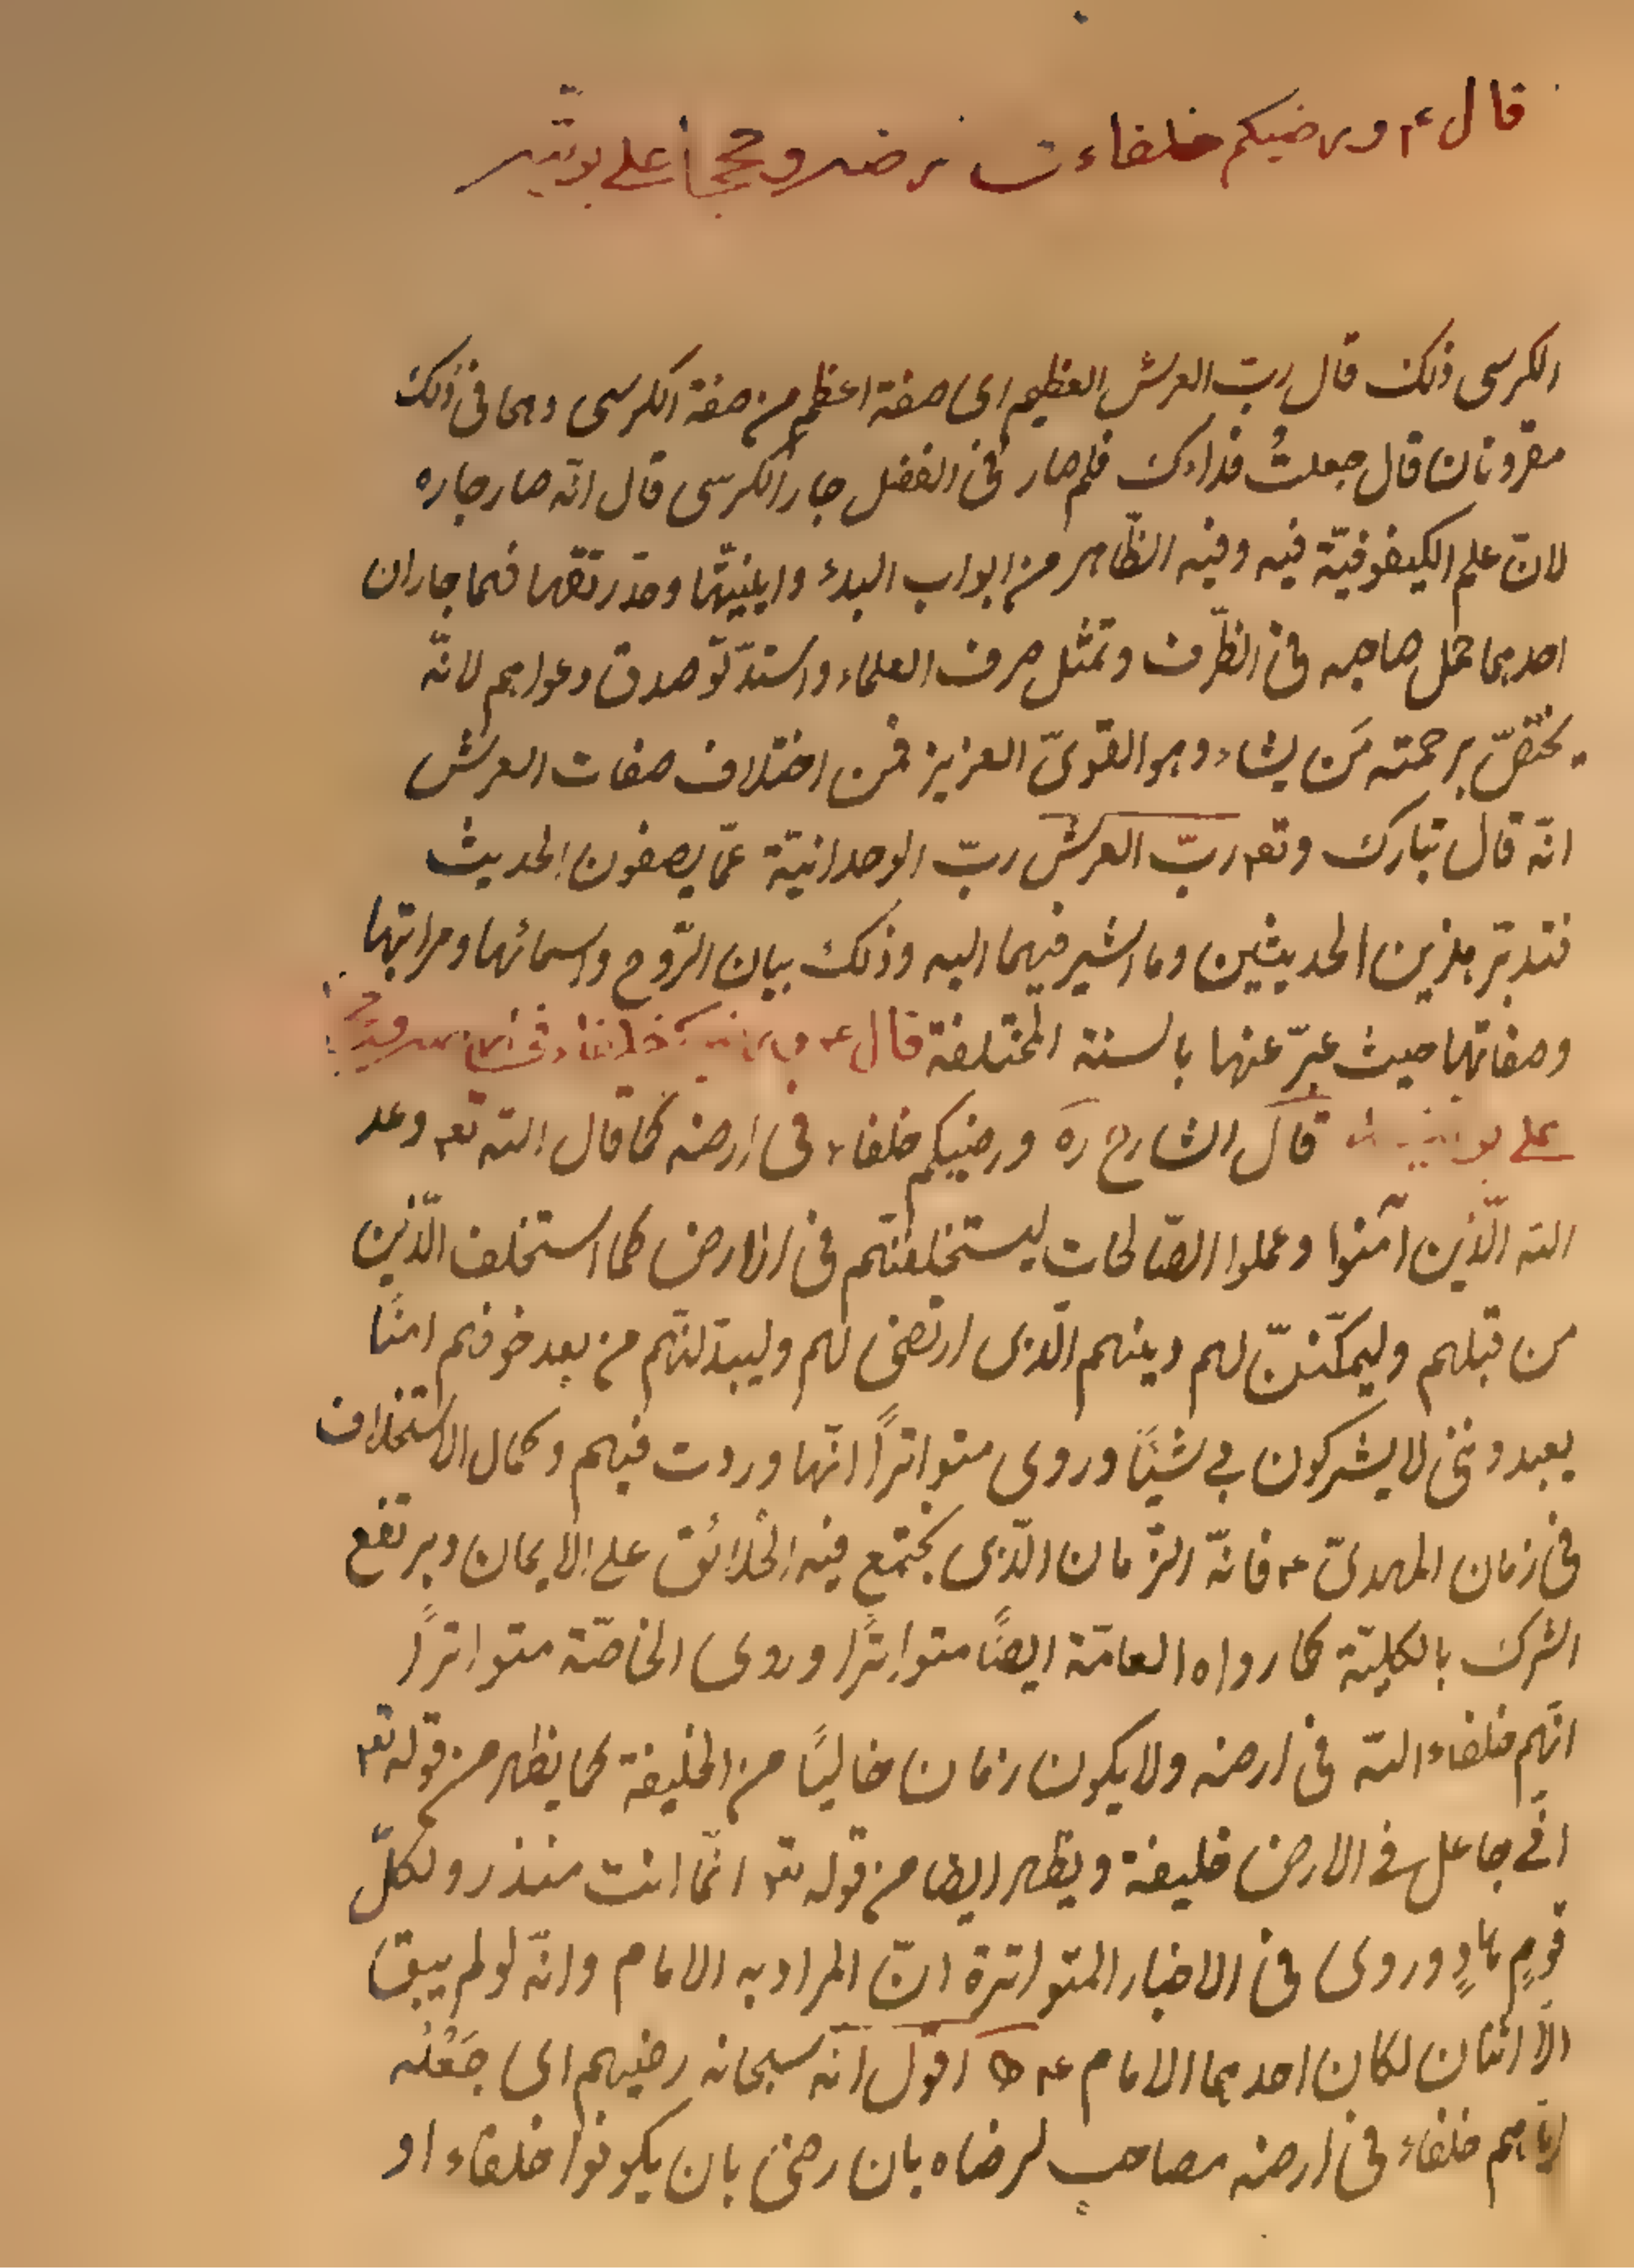 قال ع ورضيكم خلفاء في ارضه وحججا على بريّته
الكرسي ذلك قال ربّ العرش العظيم اي صفة اعظم من صفة الكرسي وهما في ذلك
مقرونان قال جعلتُ فداءك فلم صار في الفضل جار الكرسي قال انّه صار جاره
لانّ علم الكيفوفيّة فيه وفيه الظّاهر من ابواب البدء واينيّتها وحدّ رتقها فهما جاران
احدهما حمل صاحبه في الظّرف وبمثل صرف العلماء واستدلّوا صدق دعواهم لانّه
يختصّ برحمته مَن يشاء وهو القويّ العزيز فمن اختلاف صفات العرش
انّه قال تبارك وتعـ ربّ العرش ربّ الوحدانيّة عمّا يصفون الحديث
فتدبّر هذين الحديثين وما اشير فيهما اليه وذلك بيان الرّوح واسمائها ومراتبها
وصفاتها حيث عبّر عنها بالسنة المختلفة قال ع ورضيكم خلفاء في ارضه وحججا
على بريّته قال الشارح ره ورضيكم خلفاء في ارضه كما قال الله تعـ وعد
الله الّذين آمنوا وعملوا الصّالحات ليستخلفنّهم في الارض كما استخلف الّذين
من قبلهم وليمكّننّ لهم دينهم الّذي ارتضى لهم وليبدّلنّهم من بعد خوفهم امنًا
يعبدونني لا يشركون بي شيئًا وروي متواترًا انّها وردت فيهم وكمال الاستخلاف
في زمان المهديّ ع فانّه الزّمان الّذي يجتمع فيه الخلائق على الايمان ويرتفع
الشرك بالكليّة كما رواه العامّة ايضًا متواترًا وروى الخاصّة متواترًا
انّهم خلفاء الله في ارضه ولا يكون زمان خاليًا من الخليفة كما يظهر من قوله تعـ
انّي جاعل في الارض خليفة ويظهر ايضا من قوله تعـ انّما انت منذر ولكلّ
قومٍ هادٍ وروي في الاخبار المتواترة انّ المراد به الامام وانّه لو لم يبق
الّا اثنان لكان احدهما الامام ع اقول انّه سبحانه رضيهم اي جَعْلُه
ايّاهم خلفاء في ارضه مصاحب لرضاه بان رضي بان يكونوا خلفاء او